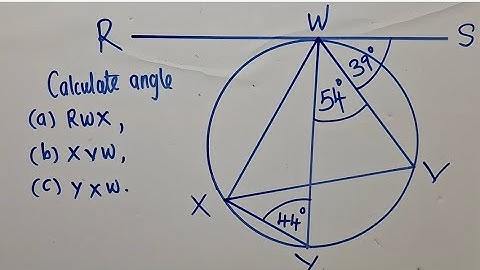 W
R S
39°
54°
Calculate angle
(a) RWX,
(b) XVW,
(c) YXW.
X V
44°
Y